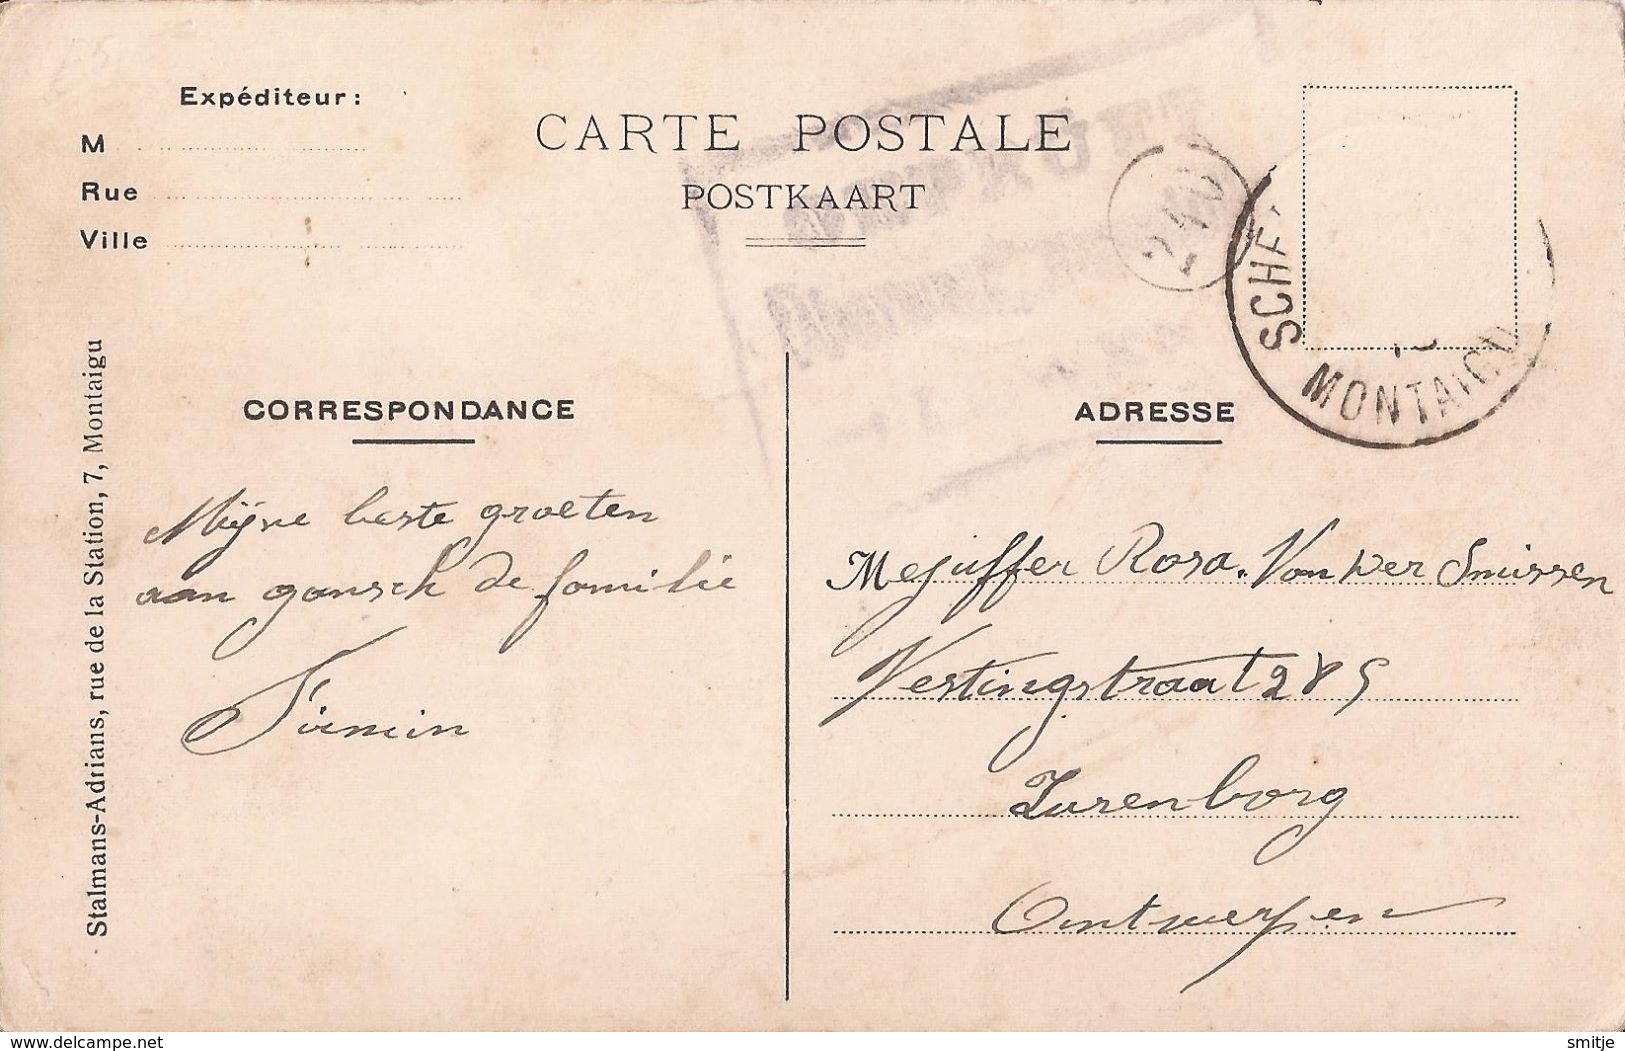 Expéditeur :
M
Rue
Ville
CARTE POSTALE
POSTKAART
240
SCHE
MONTAIGU
Stalmans-Adrians, rue de la Station, 7, Montaigu
CORRESPONDANCE
Mijne beste groeten
aan gansch de familie
Firmin
ADRESSE
Mejuffer Rosa. Van der Smissen
Vestingstraat 285
Zurenborg
Antwerpen
www.delcampe.net
smitje